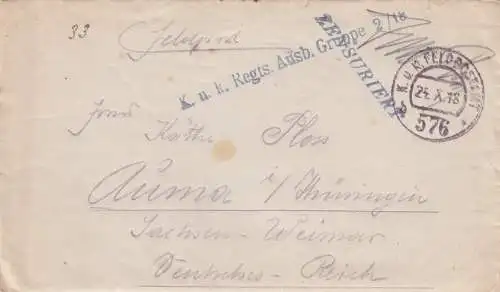 33
Feldpost
2/18
ZENSURIERT
K. u. k. Regts. Ausb. Gruppe
K. u. K. FELDPOSTAMT
24. X. 18
b
576
Käthe Ploss
Auma i/Thüringen
Sachsen-Weimar
Deutsches-Reich